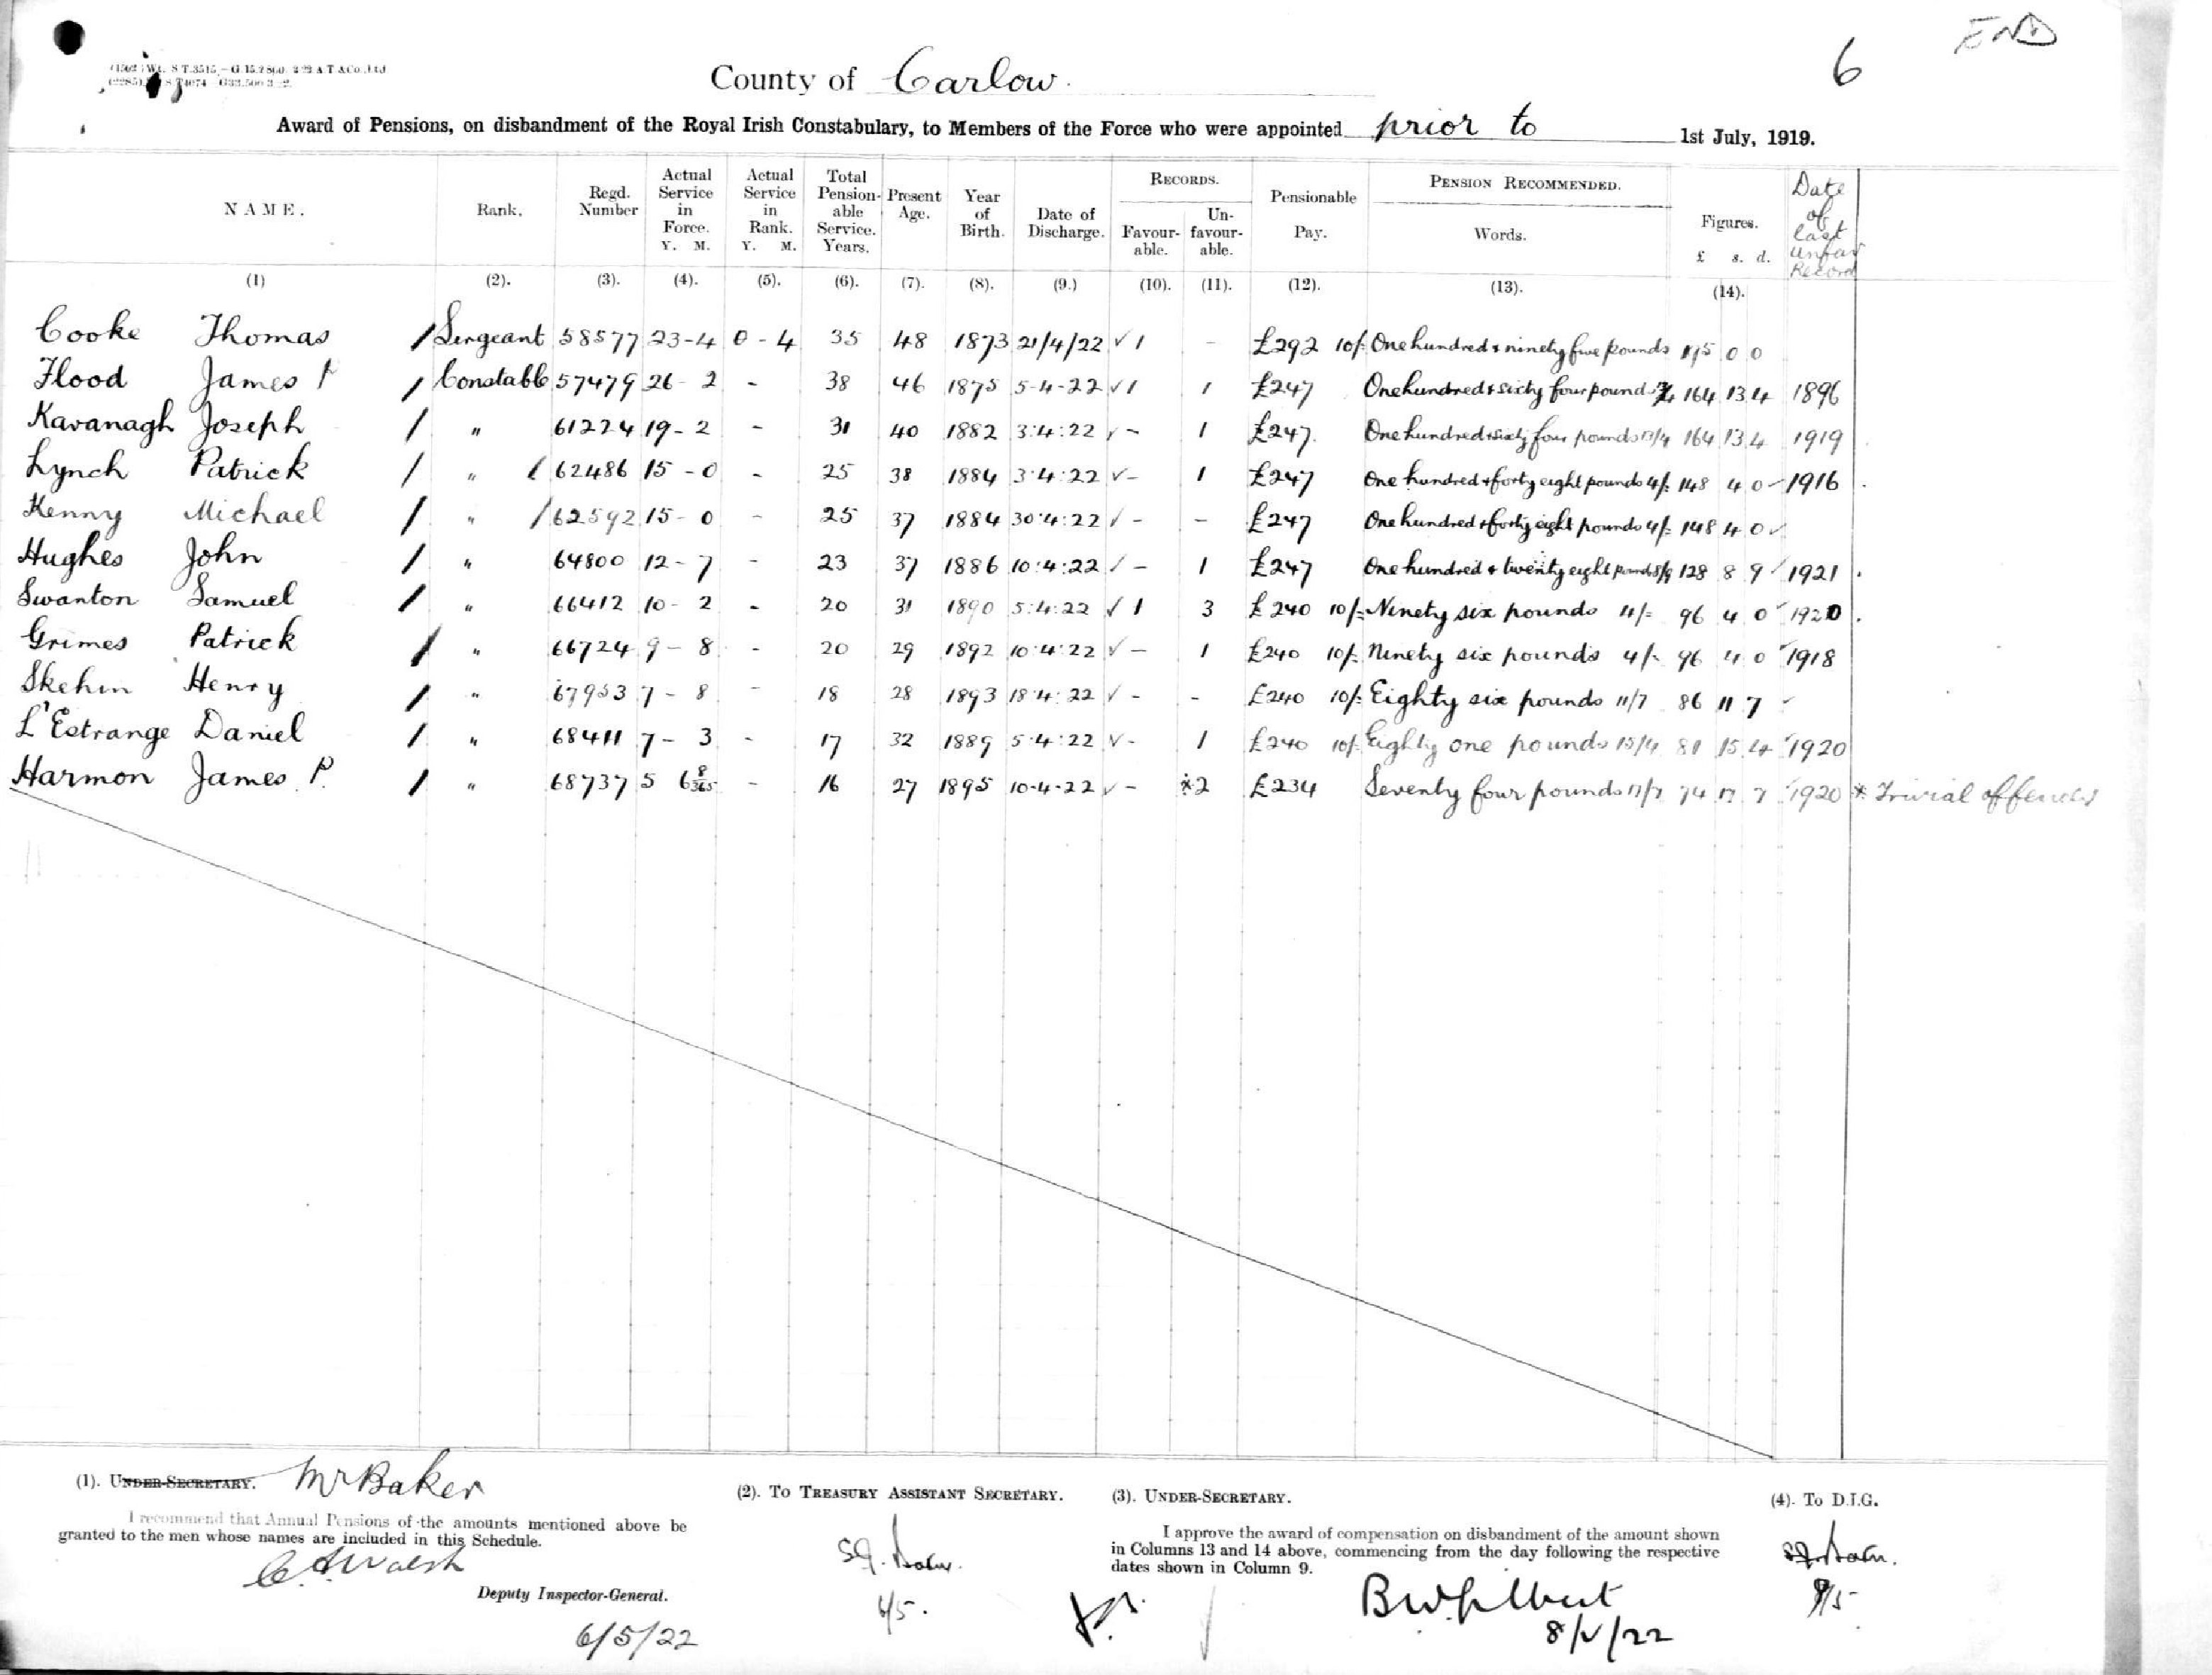 END
6
County of Carlow.
Award of Pensions, on disbandment of the Royal Irish Constabulary, to Members of the Force who were appointed prior to 1st July, 1919.
NAME. Rank. Regd. Number Actual Service in Force. Y. M. Actual Service in Rank. Y. M. Total Pensionable Service. Years. Present Age. Year of Birth. Date of Discharge. RECORDS. Favourable. Unfavourable. Pensionable Pay. PENSION RECOMMENDED. Words. Figures. £ s. d. Date of last unfav Record
(1) (2). (3). (4). (5). (6). (7). (8). (9.) (10). (11). (12). (13). (14).
Cooke Thomas / Sergeant 58577 23-4 0-4 35 48 1873 21/4/22 ✓ 1 - £292 10/- One hundred & ninety five pounds 195 0 0
Flood James P / Constable 57479 26-2 - 38 46 1875 5-4-22 ✓ 1 1 £247 One hundred & sixty four pounds 164 13 4 1896
Kavanagh Joseph / " 61224 19-2 - 31 40 1882 3:4:22 ✓ - 1 £247. One hundred & sixty four pounds 13/4 164 13 4 1919
Lynch Patrick / " / 62486 15-0 - 25 38 1884 3:4:22 ✓ - 1 £247 One hundred & forty eight pounds 4/- 148 4 0 1916
Kenny Michael / " / 62592 15-0 - 25 37 1884 30:4:22 ✓ - - £247 One hundred & forty eight pounds 4/- 148 4 0 ✓
Hughes John / " 64800 12-7 - 23 37 1886 10:4:22 ✓ - 1 £247 One hundred & twenty eight pounds 8/9 128 8 9 ✓ 1921
Swanton Samuel / " 66412 10-2 - 20 31 1890 5:4:22 ✓ 1 3 £240 10/- Ninety six pounds 4/- 96 4 0 ✓ 1920
Grimes Patrick / " 66724 9-8 - 20 29 1892 10:4:22 ✓ - 1 £240 10/- Ninety six pounds 4/- 96 4 0 ✓ 1918
Skehin Henry / " 67953 7-8 - 18 28 1893 18:4:22 ✓ - - £240 10/- Eighty six pounds 11/7 86 11 7 ✓
L'Estrange Daniel / " 68411 7-3 - 17 32 1889 5:4:22 ✓ - 1 £240 10/- Eighty one pounds 15/4 81 15 4 ✓ 1920
Harmon James P. / " 68737 5 6 8/365 - 16 27 1895 10-4-22 ✓ - *2 £234 Seventy four pounds 17/7 74 17 7 ✓ 1920 * Trivial offences
(1). UNDER-SECRETARY. Mr Baker
I recommend that Annual Pensions of the amounts mentioned above be
granted to the men whose names are included in this Schedule.
C A Walsh
Deputy Inspector-General.
6/5/22
(2). To TREASURY ASSISTANT SECRETARY.
6/5.
(3). UNDER-SECRETARY.
I approve the award of compensation on disbandment of the amount shown
in Columns 13 and 14 above, commencing from the day following the respective
dates shown in Column 9.
B W Gilbert
8/V/22
(4). To D.I.G.
9/5